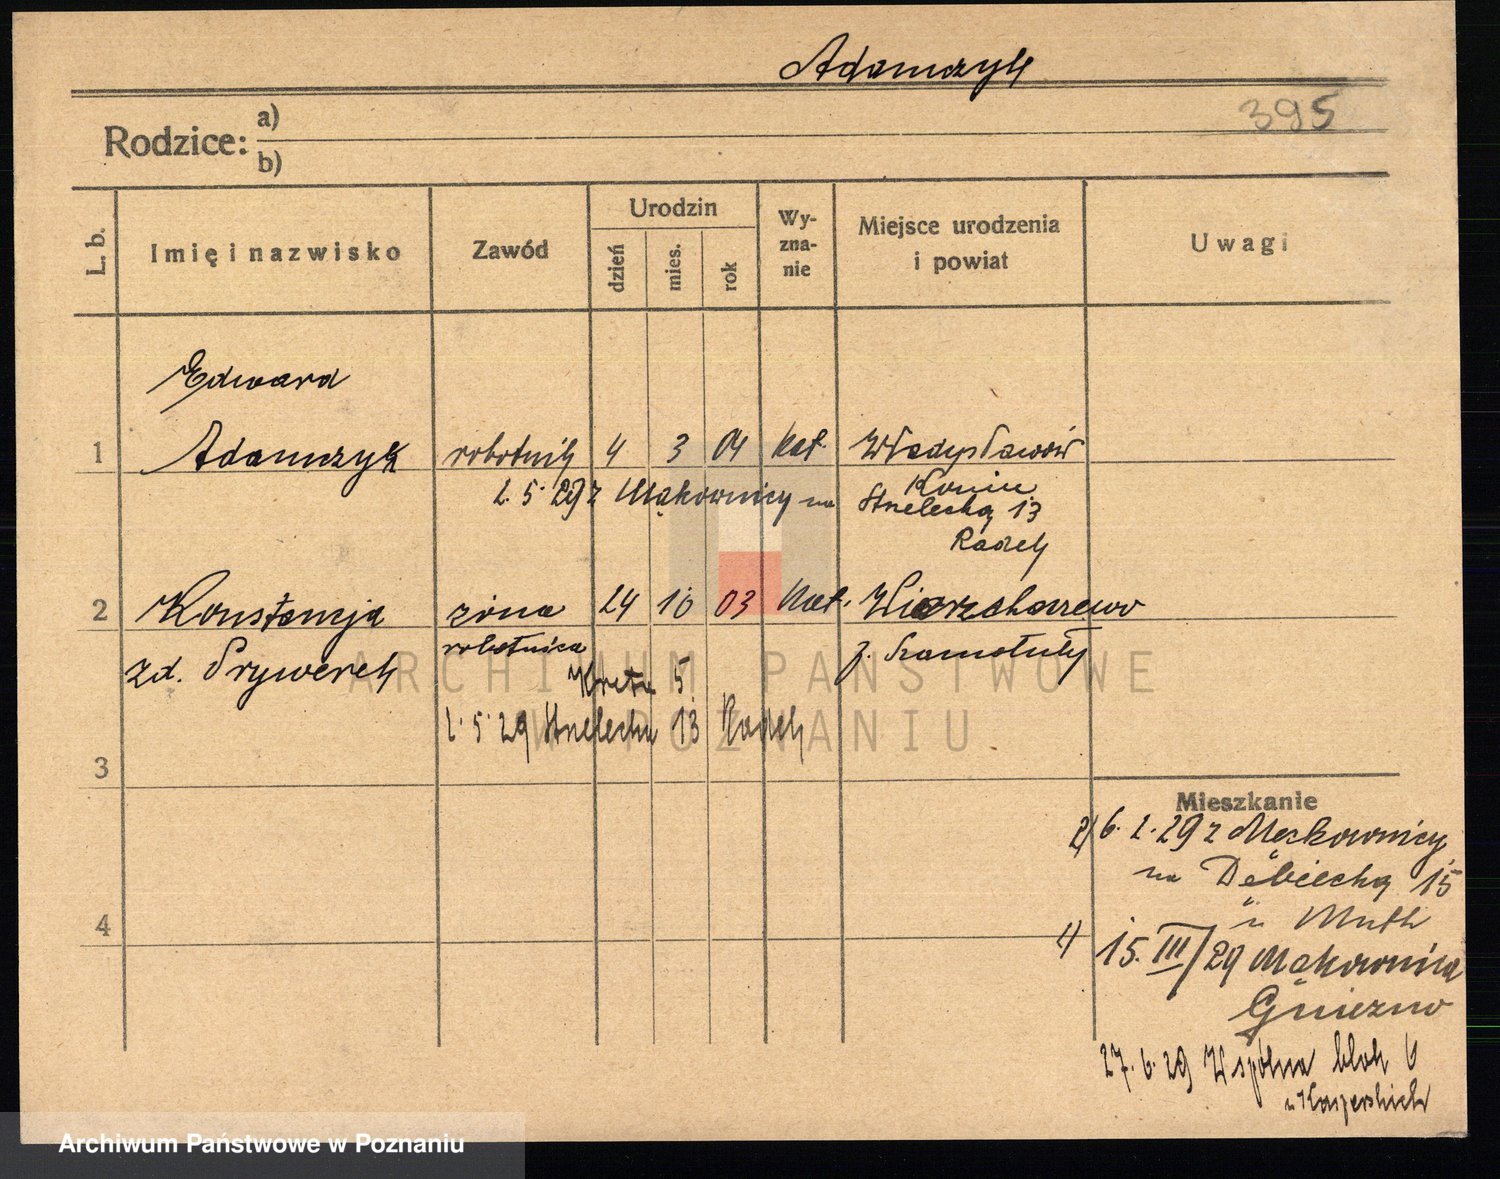 Adamczyk
395
Rodzice: a)
b)
L. b.
Imię i nazwisko
Zawód
Urodzin
dzień
mies.
rok
Wy-
zna-
nie
Miejsce urodzenia
i powiat
Uwagi
Edward
1 Adamczyk robotnik 4 3 04 kat. Władysławów
Konin
2. 5. 29 z Mąkownicy na Strzelecką 13
Radek
2 Konstancja żona 24 10 03 kat. Wierzchaczewo
robotnica p. Szamotuły
zd. Prywerek
Kręta 5
2. 5. 29 Strzelecka 13 Radek
3
Mieszkanie
2) 6. 2. 29 z Mąkownicy
na Dębiecką 15
u Muth
4
1) 15. III/29 Mąkownica
Gniezno
27. 6. 29 Wspólna blok 6
u Kasperskich
ARCHIWUM PAŃSTWOWE
W POZNANIU
Archiwum Państwowe w Poznaniu